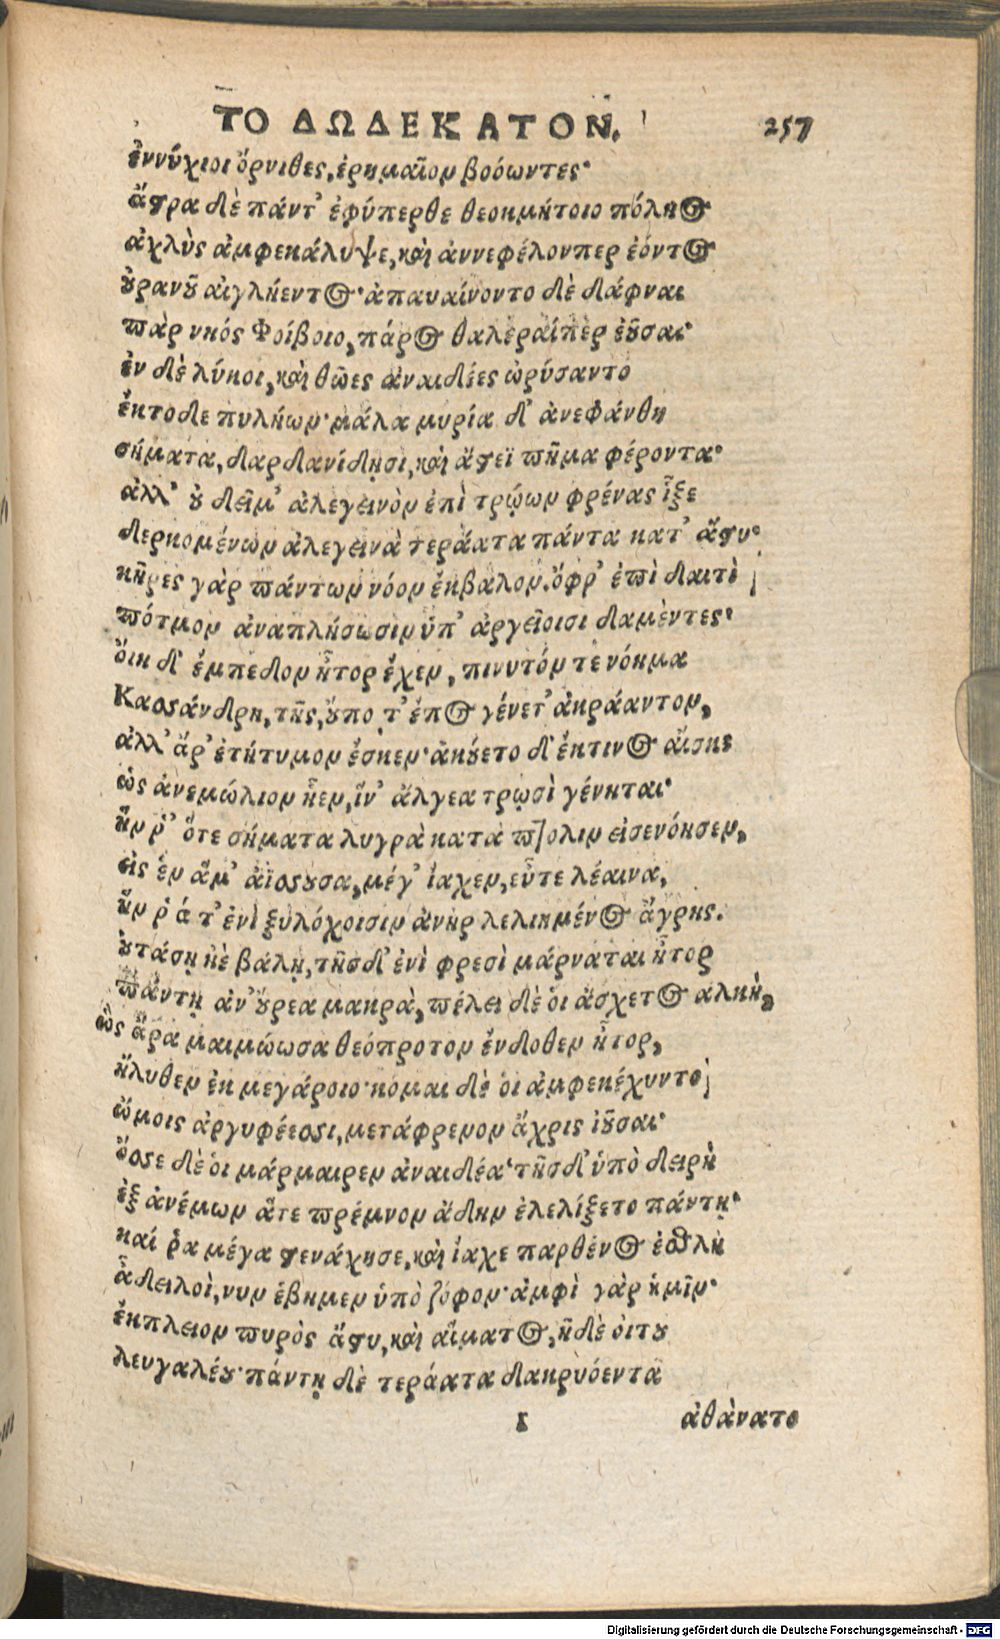 ΤΟ ΔΩΔΕΚΑΤΟΝ. 257
ἐννύχιοι ὄρνιθες, ἐρημαῖον βοόωντες·
ἄστρα δὲ πάντ' ἐφύπερθε θεοκμήτοιο πόληος
ἀχλὺς ἀμφεκάλυψε, καὶ ἀννεφέλονπερ ἐόντος
οὐρανοῦ αἰγλήεντος· ἀπαυαίνοντο δὲ δάφναι
πὰρ νηός Φοίβοιο, πάρος θαλεραίπερ ἐοῦσαι·
ἐν δὲ λύκοι, καὶ θῶες ἀναιδέες ὠρύσαντο
ἔκτοθε πυλήων· μάλα μυρία δ' ἀνεφάνθη
σήματα, δαρδανίδῃσι, καὶ ἄστεϊ πῆμα φέροντα·
ἀλλ' οὐ δεῖμ' ἀλεγεινὸν ἐπὶ τρώων φρένας ἷξε
δερκομένων ἀλεγεινὰ τεράατα πάντα κατ' ἄστυ·
κῆρες γὰρ πάντων νόον ἔκβαλον. ὄφρ' ἐπὶ δαιτὶ
πότμον ἀναπλήσωσιν ὑπ' ἀργείοισι δαμέντες·
ὄιη δ' ἔμπεδον ἦτορ ἔχεν, πινυτόν τε νόημα
Κασσάνδρη, τῆς, οὔποτ' ἔπος γένετ' ἀκράαντον,
ἀλλ' ἄρ' ἐτήτυμον ἔσκεν· ἀκούετο δ' ἔκτινος αἴσης
ὡς ἀνεμώλιον ἦεν, ἵν' ἄλγεα τρωσὶ γένηται·
ἥν ῥ' ὅτε σήματα λυγρὰ κατὰ πτόλιν εἰσενόησεν,
εἰς ἓν ἅμ' ἀΐσσουσα, μέγ' ἴαχεν, εὖτε λέαινα,
ἥν ῥά τ' ἐνὶ ξυλόχοισιν ἀνὴρ λελιημένος ἄγρης.
οὐτάσῃ ἠὲ βάλῃ, τῆσδ' ἐνὶ φρεσὶ μάρναται ἦτορ
πάντῃ ἀν' οὔρεα μακρὰ, πέλει δὲ οἱ ἄσχετος ἀλκὴ,
ὣς ἄρα μαιμώωσα θεόπροτον ἔνδοθεν ἦτορ,
ἤλυθεν ἐκ μεγάροιο· κόμαι δὲ οἱ ἀμφεκέχυντο
ὤμοις ἀργυφέεσσι, μετάφρενον ἄχρις ἰοῦσαι·
ὄσσε δὲ οἱ μάρμαιρεν ἀναιδέα· τῆσδ' ὑπὸ δειρὴ
ἐξ ἀνέμων ἅτε πρέμνον ἄδην ἐλελίξετο πάντῃ·
καί ῥα μέγα στενάχησε, καὶ ἴαχε παρθένος ἐσθλὴ
ἆ δειλοὶ, νυν ἔβημεν ὑπὸ ζόφον· ἀμφὶ γὰρ ἡμῖν·
ἔκπλειον πυρὸς ἄστυ, καὶ αἵματος, ἠδὲ οἰτου
λευγαλέου· πάντῃ δὲ τεράατα δακρυόεντα
r ἀθάνατο
Digitalisierung gefördert durch die Deutsche Forschungsgemeinschaft - DFG